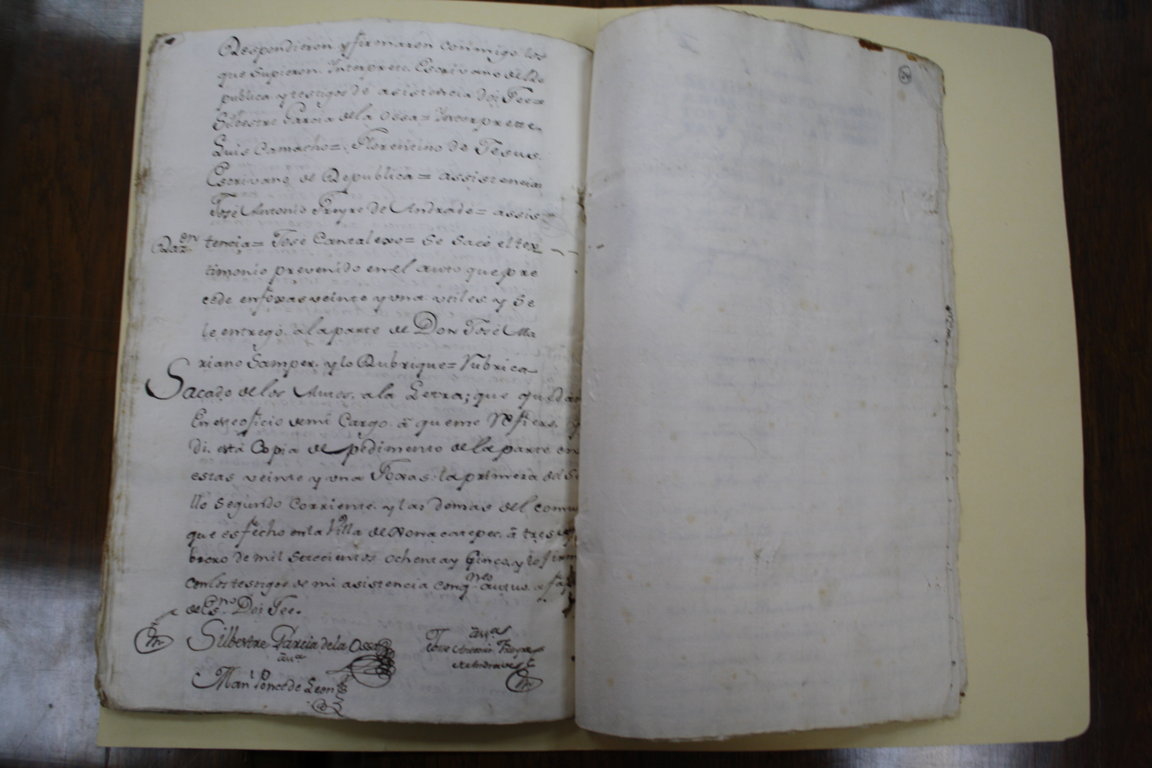 Respondieron y firmaron conmigo los
que supieron. Interprete Escrivano de Re
publica y testigos de asistencia doi Fee=
Silbestre Garcia de la Ossa= Ynterprette.
Luis Camacho=. Florencino de Jesus.
Escrivano de Republica= assistencia
José Antonio Freyre de Andrade= assis
Razon
tencia= José Cantalexo= Se Sacó el tex
timonio prevenido en el auto que pre
cede en foxas veinte y vna vtiles y se
le entregó. a la parte de Don José Ma
riano Samper. y lo Rubriqué= Rubrica
Sacado de los Autos, a la Letra; que quedan
En este oficio de mi Cargo. â que me Refiero. y
di. esta Copia de pedimento de la parte en
estas veinte y vna Foxas. la primera del Se
llo Segundo Corriente. y las demas del comun
que es fecho en la Villa de a tres
brero de mil Setecientos ochenta y Cinco, y lo firm
con los testigos de mi asistencia con qnes. actuo. a fal
de Esno. Doi Fee.
Silbestre Garcia de la Ossa
Jose Antonio Freyre
de Andrade
Manl. Ponce de Leon